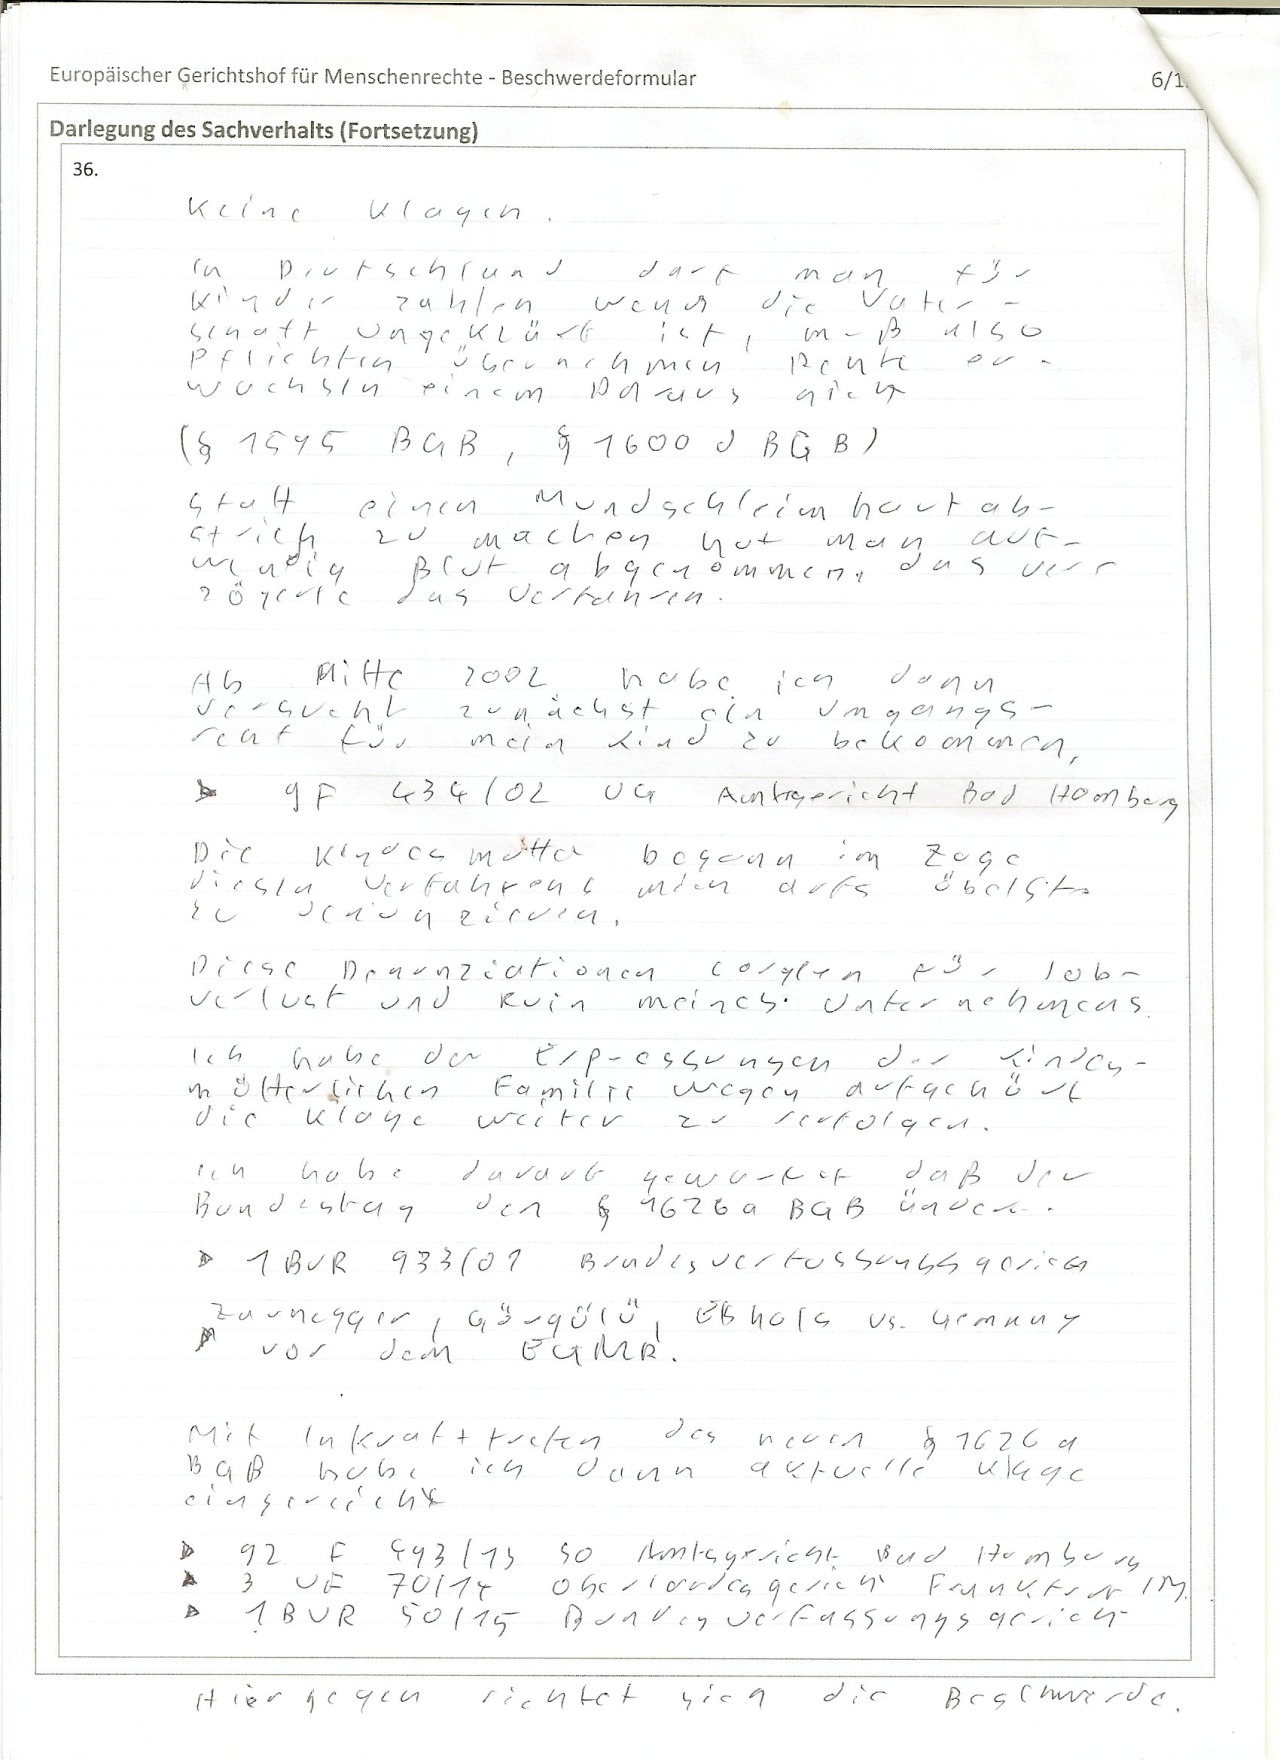 Europäischer Gerichtshof für Menschenrechte - Beschwerdeformular 6/1
Darlegung des Sachverhalts (Fortsetzung)
36.
Keine Klagen.
In Deutschland darf man für
Kinder zahlen wenn die Vater-
schaft ungeklärt ist, muß also
Pflichten übernehmen Rechte er-
wachsen einem Daraus nicht
(§ 1595 BGB, § 1600 d BGB)
Statt einen Mundschleimhautab-
strich zu machen hat man auf-
wendig Blut abgenommen. das ver-
zögerte das Verfahren.
Ab Mitte 2002 habe ich dann
versucht zunächst ein Umgangs-
recht für mein Kind zu bekommen,
9F 434/02 UG Amtsgericht Bad Homburg
Die Kindesmutter begann im Zuge
diesen Verfahrens mich aufs übelste
zu denunzieren.
Diese Denunziationen sorgten für Job-
verlust und Ruin meines Unternehmens.
Ich habe der Erpressungen der Kindes-
mütterlichen Familie wegen aufgehört
die Klage weiter zu verfolgen.
Ich habe darauf gewartet daß der
Bundestag den § 1626a BGB ändert.
1 BVR 933/01 Bundesverfassungsgericht
Zaunegger, Görgülü, Elsholz vs. Germany
vor dem EGMR.
Mit Inkrafttreten des neuen § 1626a
BGB habe ich dann aktuelle Klage
eingereicht
92 F 493/13 SO Amtsgericht Bad Homburg
3 UF 70/14 Oberlandesgericht Frankfurt /M.
1 BVR 50/15 Bundesverfassungsgericht
Hiergegen richtet sich die Beschwerde.